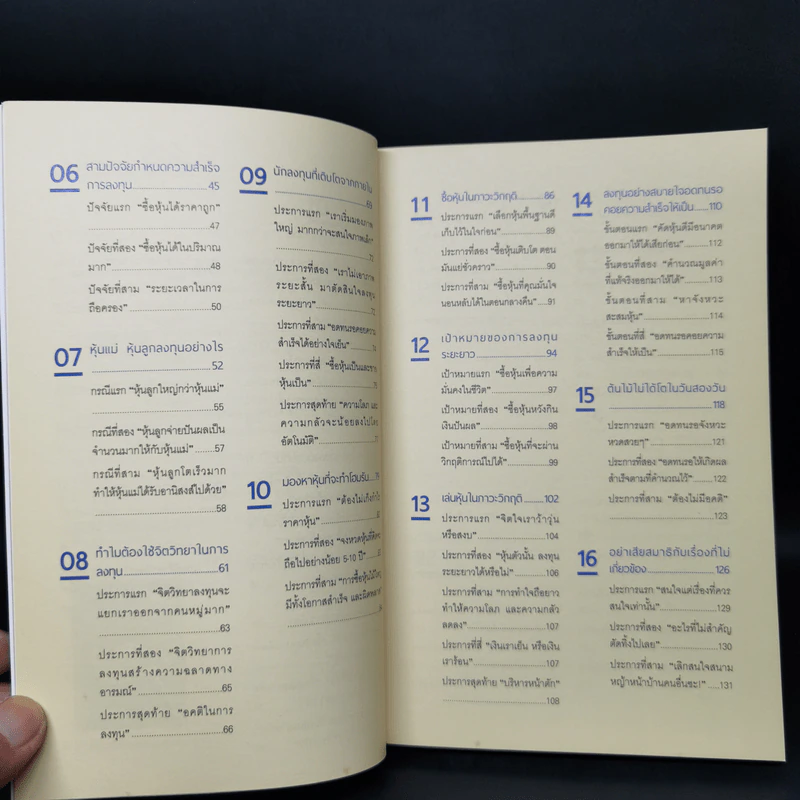 06 สามปัจจัยกำหนดความสำเร็จ
การลงทุน 45
ปัจจัยแรก "ซื้อหุ้นได้ราคาถูก"
47
ปัจจัยที่สอง "ซื้อหุ้นได้ในปริมาณ
มาก" 48
ปัจจัยที่สาม "ระยะเวลาในการ
ถือครอง" 50
07 หุ้นแม่ หุ้นลูกลงทุนอย่างไร
52
กรณีแรก "หุ้นลูกใหญ่กว่าหุ้นแม่"
55
กรณีที่สอง "หุ้นลูกจ่ายปันผลเป็น
จำนวนมากให้กับหุ้นแม่" 57
กรณีที่สาม "หุ้นลูกโตเร็วมาก
ทำให้หุ้นแม่ได้รับอานิสงส์ไปด้วย"
58
08 ทำไมต้องใช้จิตวิทยาในการ
ลงทุน 61
ประการแรก "จิตวิทยาลงทุนจะ
แยกเราออกจากคนหมู่มาก"
63
ประการที่สอง "จิตวิทยาการ
ลงทุนสร้างความฉลาดทาง
อารมณ์" 65
ประการสุดท้าย "อคติในการ
ลงทุน" 66
09 นักลงทุนที่เติบโตจากภายใน
69
ประการแรก "เราเริ่มมองภาพ
ใหญ่ มากกว่าจะสนใจภาพเล็ก"
71
ประการที่สอง "เราไม่เอาภาพ
ระยะสั้น มาตัดสินใจลงทุน
ระยะยาว" 72
ประการที่สาม "อดทนคอยความ
สำเร็จได้อย่างใจเย็น"
ประการที่สี่ "ซื้อหุ้นเป็นและขาย
หุ้นเป็น"
ประการสุดท้าย "ความโลภ และ
ความกลัวจะน้อยลงไปโดย
อัตโนมัติ"
10 มองหาหุ้นที่จะทำโฮมรัน
ประการแรก "ต้องไม่เกี่ยงกับ
ราคาหุ้น"
ประการที่สอง
ถือไปอย่างน้อย 5-10 ปี"
ประการที่สาม "การซื้อหุ้น
มีทั้งโอกาสสำเร็จ และผิดพลาด"
11 ซื้อหุ้นในภาวะวิกฤติ 86
ประการแรก "เลือกหุ้นพื้นฐานดี
เก็บไว้ในใจก่อน" 89
ประการที่สอง "ซื้อหุ้นเติบโต ตอน
มันแย่ชั่วคราว" 90
ประการที่สาม "ซื้อหุ้นที่คุณมั่นใจ
นอนหลับได้ในตอนกลางคืน" 91
12 เป้าหมายของการลงทุน
ระยะยาว 94
เป้าหมายแรก "ซื้อหุ้นเพื่อความ
มั่นคงในชีวิต" 97
เป้าหมายที่สอง "ซื้อหุ้นหวังกิน
เงินปันผล" 98
เป้าหมายที่สาม "ซื้อหุ้นที่จะผ่าน
วิกฤติการณ์ไปได้" 99
13 เล่นหุ้นในภาวะวิกฤติ 102
ประการแรก "จิตใจเราว้าวุ่น
หรือสงบ" 104
ประการที่สอง "หุ้นตัวนั้น ลงทุน
ระยะยาวได้หรือไม่" 106
ประการที่สาม "การทำใจถือยาว
ทำให้ความโลภ และความกลัว
ลดลง" 107
ประการที่สี่ "เงินเราเย็น หรือเงิน
เราร้อน" 107
ประการสุดท้าย "บริหารหน้าตัก"
108
14 ลงทุนอย่างสบายใจอดทนรอ
คอยความสำเร็จให้เป็น 110
ขั้นตอนแรก "คัดหุ้นดีมีอนาคต
ออกมาให้ได้เสียก่อน" 112
ขั้นตอนที่สอง "คำนวณมูลค่า
ที่แท้จริงออกมาให้ได้" 113
ขั้นตอนที่สาม "หาจังหวะ
สะสมหุ้น" 114
ขั้นตอนที่สี่ "อดทนรอคอยความ
สำเร็จให้เป็น" 115
15 ต้นไม้ไม่ได้โตในวันสองวัน
118
ประการแรก "อดทนรอจังหวะ
หวดสวยๆ" 121
ประการที่สอง "อดทนรอให้เกิดผล
สำเร็จตามที่คำนวณไว้" 122
ประการที่สาม "ต้องไม่มีอคติ"
123
16 อย่าเสียสมาธิกับเรื่องที่ไม่
เกี่ยวข้อง 126
ประการแรก "สนใจแต่เรื่องที่ควร
สนใจเท่านั้น" 129
ประการที่สอง "อะไรที่ไม่สำคัญ
ตัดทิ้งไปเลย" 130
ประการที่สาม "เลิกสนใจสนาม
หญ้าหน้าบ้านคนอื่นซะ!" 131